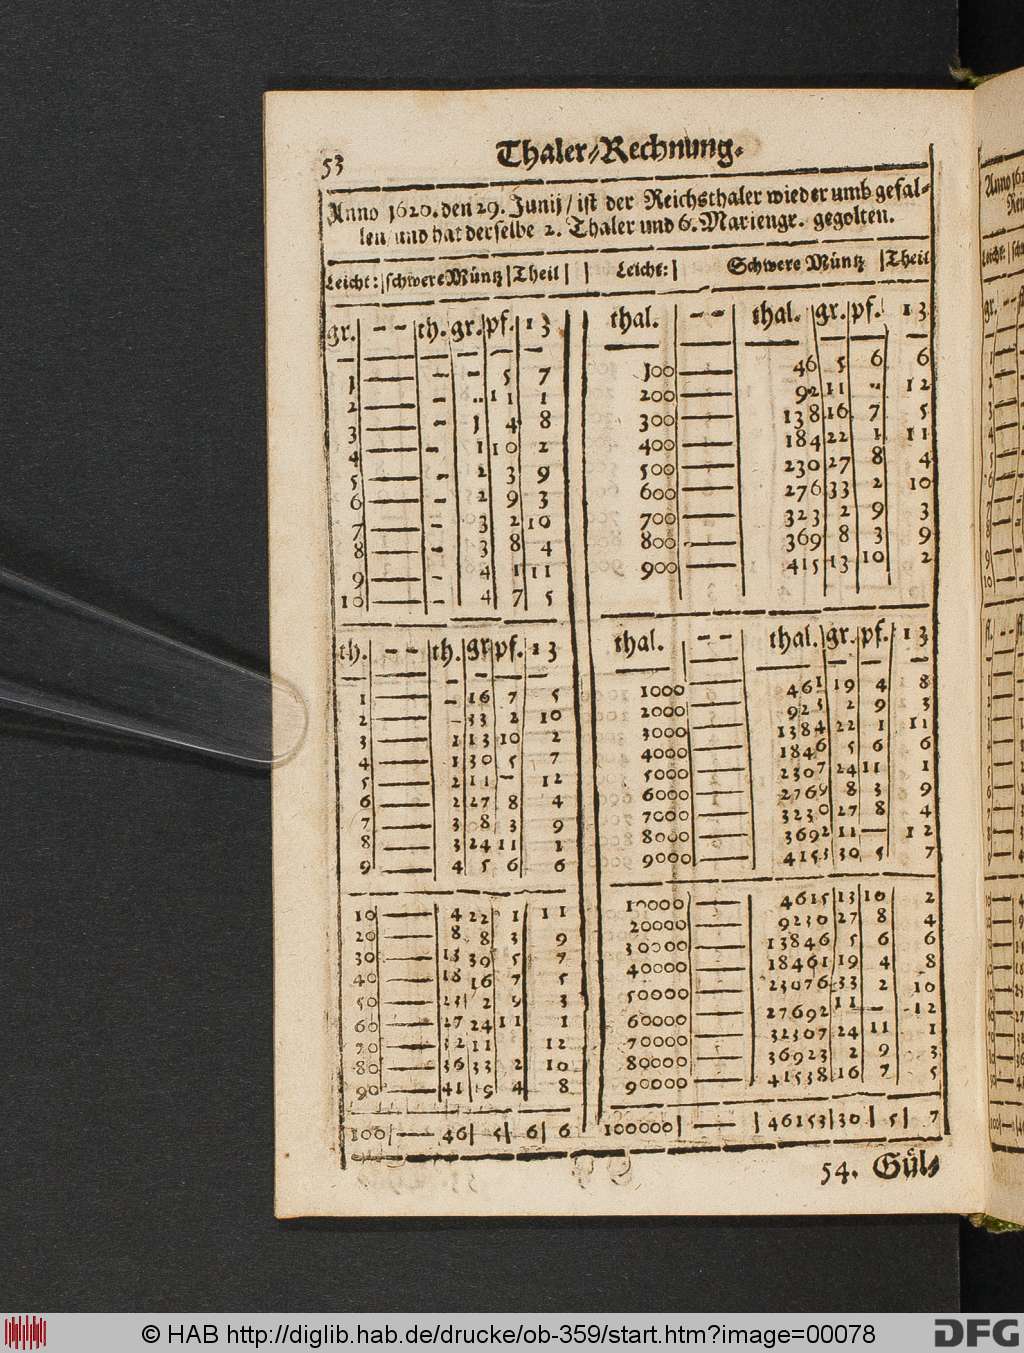 53
Thaler-Rechnung.
Anno 1620. den 29. Junij / ist der Reichsthaler wieder umb gefal-
len / und hat derselbe 2. Thaler und 6. Mariengr. gegolten.
Leicht: | schwere Müntz | Theil |
gr. | -- | th. | gr. | pf. | 13
1 — - - 5 7
2 — - .. 11 1
3 — - 1 4 8
4 — - 1 10 2
5 — - 2 3 9
6 — - 2 9 3
7 — - 3 2 10
8 — - 3 8 4
9 — - 4 1 11
10 — - 4 7 5
th. | -- | th. | gr | pf. | 13
1 — - 16 7 5
2 — - 33 2 10
3 — 1 13 10 2
4 — 1 30 5 7
5 — 2 11 - 12
6 — 2 27 8 4
7 — 3 8 3 9
8 — 3 24 11 1
9 — 4 5 6 6
10 — 4 22 1 11
20 — 8 8 3 9
30 — 13 30 5 7
40 — 18 16 7 5
50 — 23 2 9 3
60 — 27 24 11 1
70 — 32 11 12
80 — 36 33 2 10
90 — 41 19 4 8
100 | — 46 | 5 | 6 | 6
Leicht: | Schwere Müntz | Theil
thal. | -- | thal. | gr. | pf. | 13
100 — 46 5 6 6
200 — 92 11 .. 12
300 — 138 16 7 5
400 — 184 22 1 11
500 — 230 27 8 4
600 — 276 33 2 10
700 — 323 2 9 3
800 — 369 8 3 9
900 — 415 13 10 2
thal. | -- | thal. | gr. | pf. | 13
1000 — 461 19 4 8
2000 — 923 2 9 3
3000 — 1384 22 1 11
4000 — 1846 5 6 6
5000 — 2307 24 11 1
6000 — 2769 8 3 9
7000 — 3230 27 8 4
8000 — 3692 11 — 12
9000 — 4153 30 5 7
10000 — 4615 13 10 2
20000 — 9230 27 8 4
30000 — 13846 5 6 6
40000 — 18461 19 4 8
50000 — 23076 33 2 10
60000 — 27692 11 - 12
70000 — 32307 24 11 1
80000 — 36923 2 9 3
90000 — 41538 16 7 5
100000 | — | 46153 | 30 | 5 | 7
54. Gül-
Anno 162
Leicht:
gr.
© HAB http://diglib.hab.de/drucke/ob-359/start.htm?image=00078
DFG